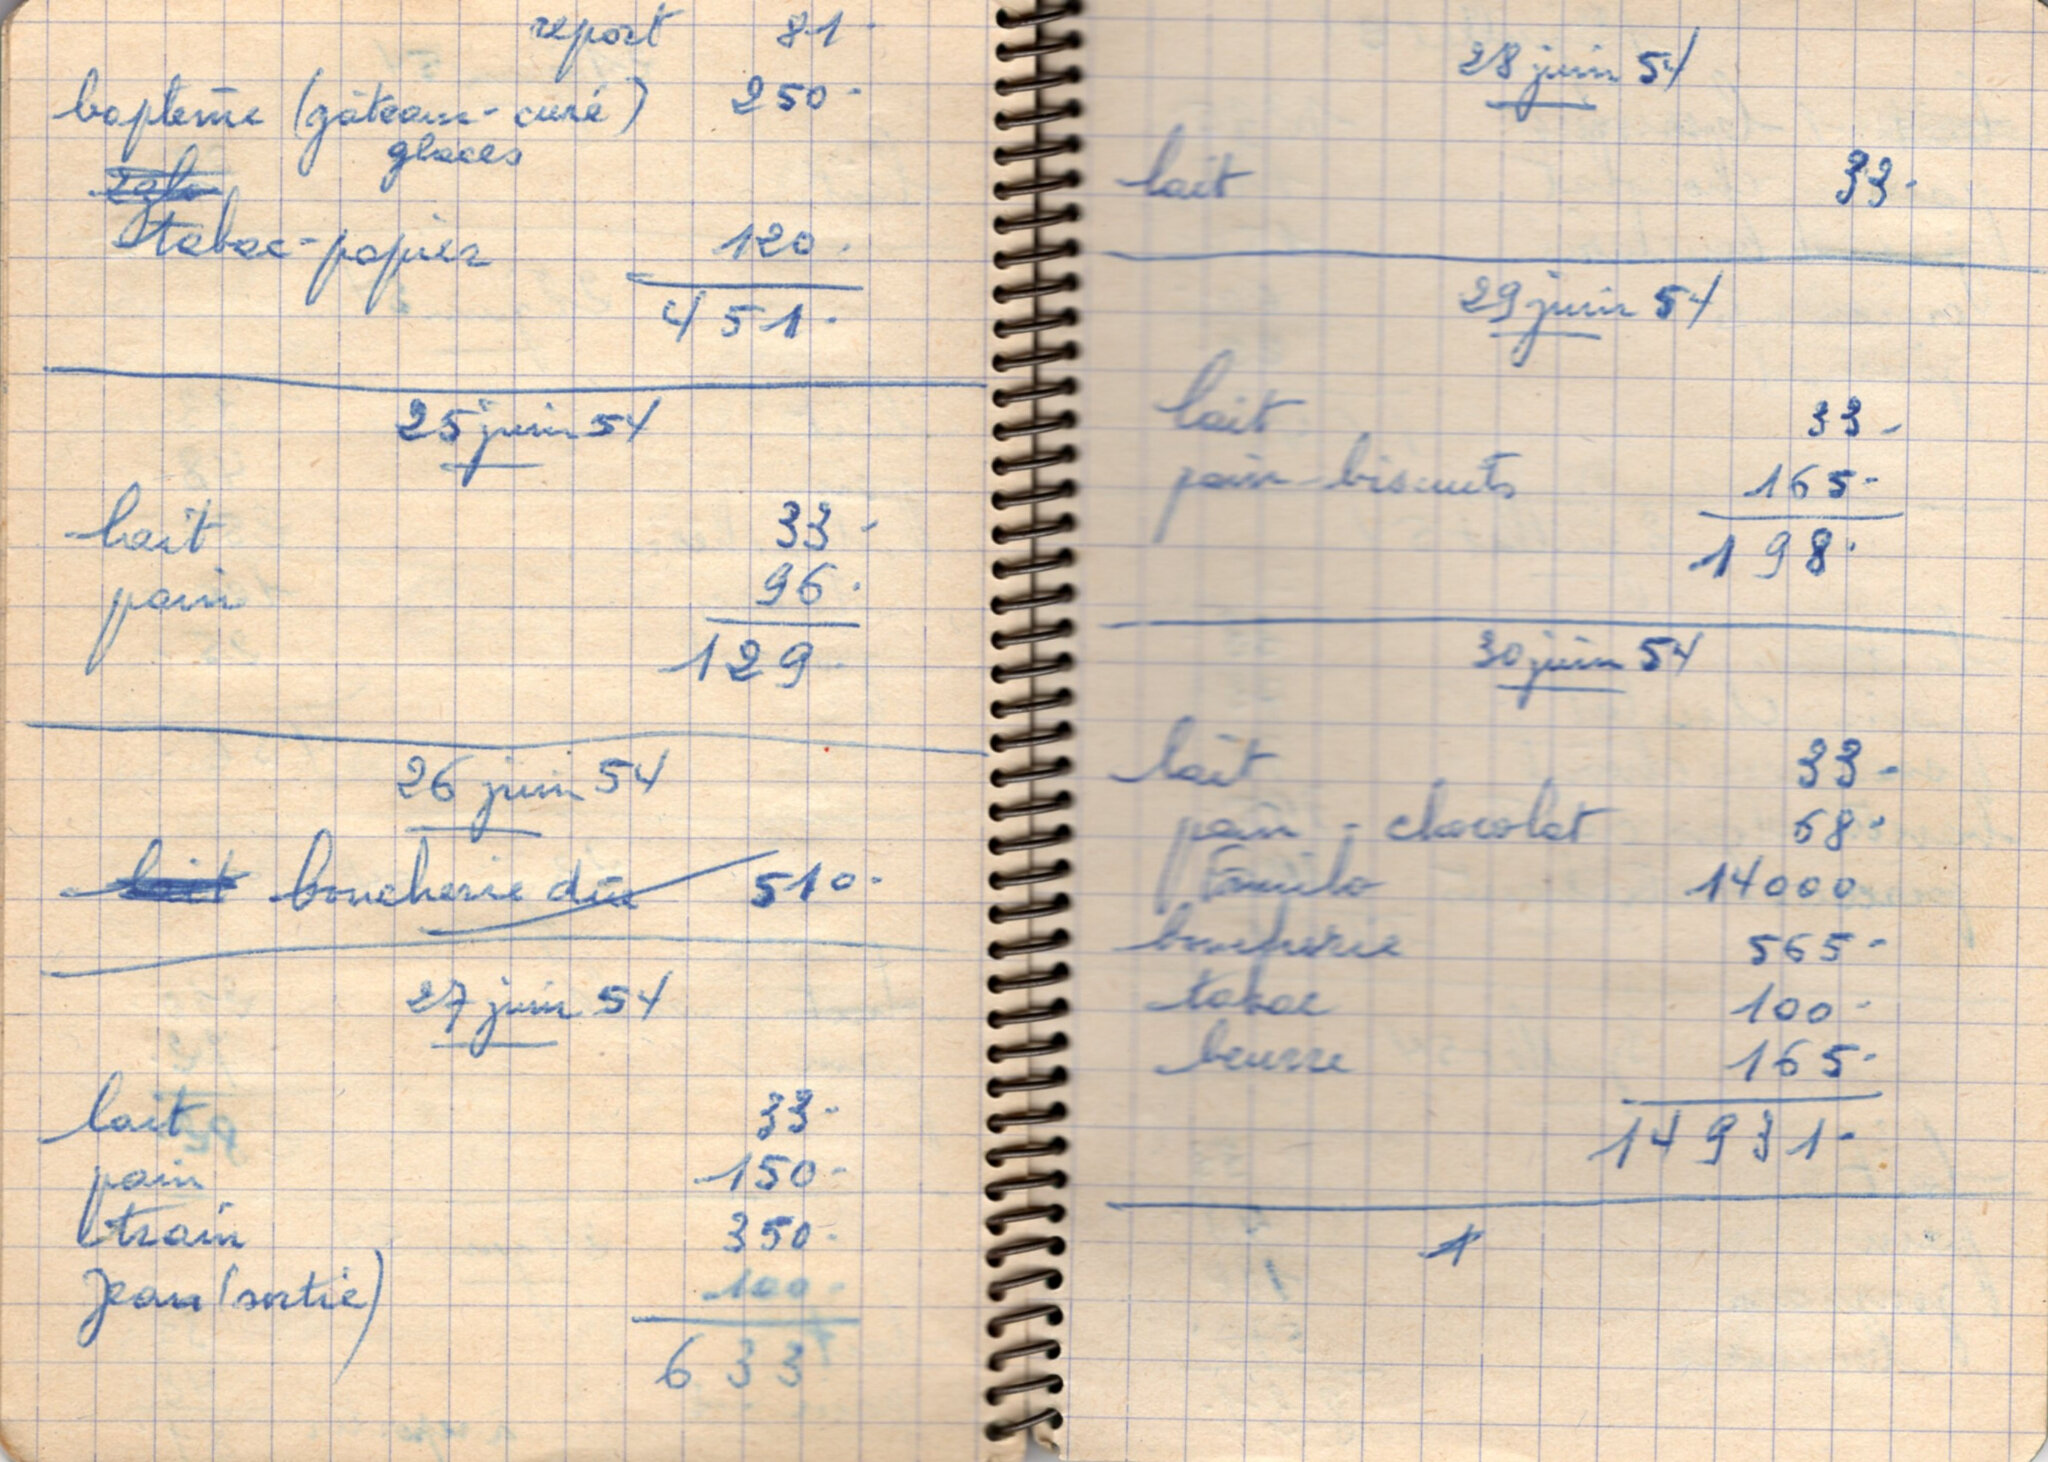 report 81-
baptême (gâteau-curé) 250-
glaces
tabac-papier 120.
451.
25 juin 54
lait 33-
pain 96.
129.
26 juin 54
lait boucherie dûe 510-
27 juin 54
lait 33-
pain 150-
train 350-
Jean (sortie) 100-
633
28 juin 54
lait 33-
29 juin 54
lait 33-
pain-biscuits 165-
198.
30 juin 54
lait 33-
pain - chocolat 68-
14000
565-
tabac 100-
beurre 165-
14931-